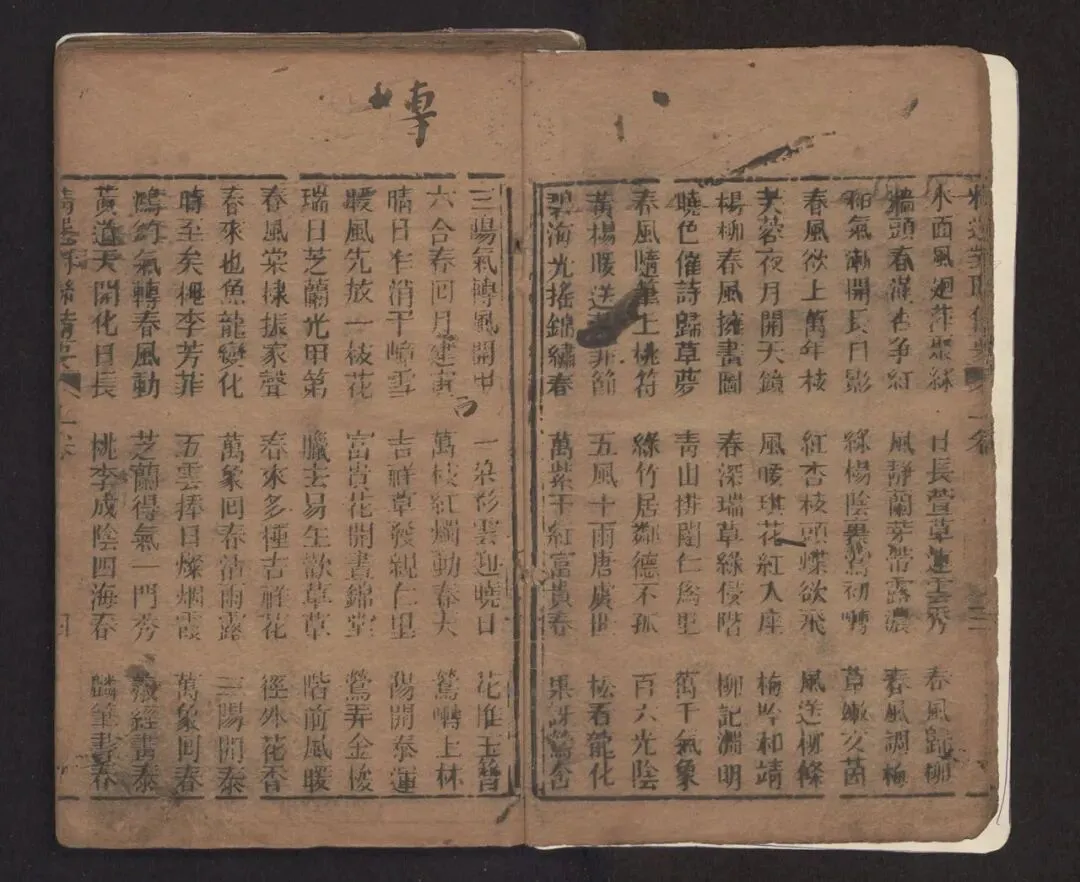 水面風廻萍聚綠 日長萱草連雲秀 春風歸柳
牆頭春滿杏爭紅 風靜蘭芽帶露濃 春風調梅
和氣漸開長日影 綠楊陰裏鶯初囀 草嫩文茵
春風欲上萬年枝 紅杏枝頭蝶欲飛 風送柳條
芙蓉夜月開天鏡 風暖琪花紅入座 梅吟和靖
楊柳春風擁畫圖 春深瑞草綠侵階 柳記淵明
曉色催詩歸草夢 青山排闥仁為里 萬千氣象
春風隨筆上桃符 綠竹居鄰德不孤 百六光陰
黃楊暖送 菲節 五風十雨唐虞世 松看龍化
碧海光搖錦繡春 萬紫千紅富貴春 果訝鶯含
專
三陽氣轉風開甲 一朵彩雲迎曉日 花惟玉簪
六合春回月建寅 萬枝紅燭動春天 鶯囀上林
晴日乍消千嶂雪 吉祥草發親仁里 陽開泰運
暖風先放一枝花 富貴花開晝錦堂 鶯弄金梭
瑞日芝蘭光甲第 臘去易生歡草草 階前風暖
春風棠棣振家聲 春來多種吉祥花 徑外花香
春來也魚龍變化 萬象回春沾雨露 三陽開泰
時至矣桃李芳菲 五雲捧日燦烟霞 萬象回春
鴻鈞氣轉春風動 芝蘭得氣一門秀 義經書泰
黃道天開化日長 桃李成陰四海春 麟筆書春
四